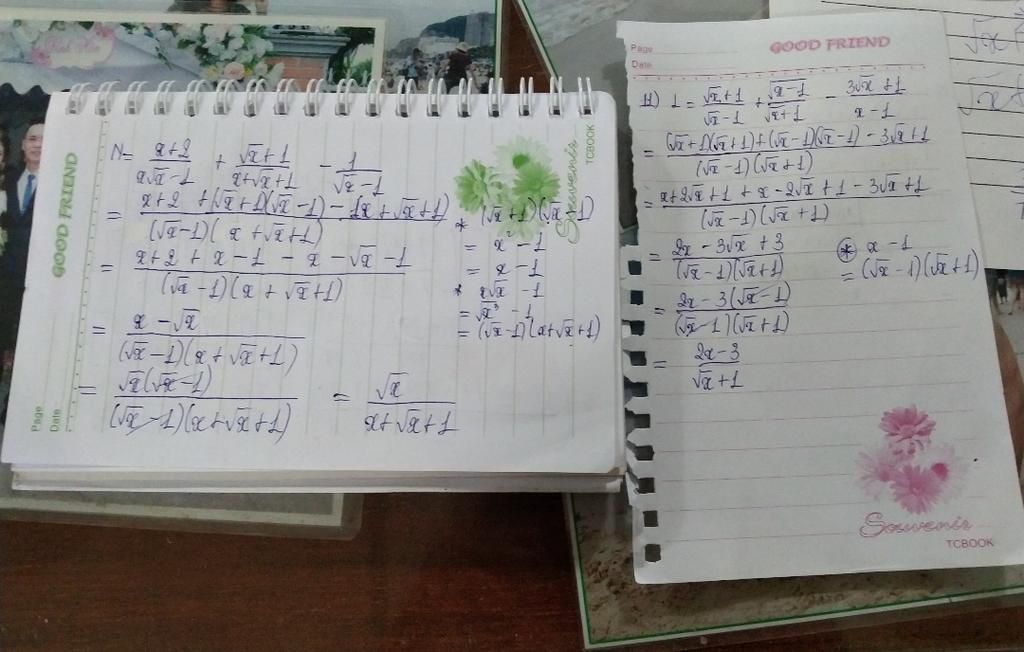 GOOD FRIEND
Page
Date
TCBOOK
Souvenir
N = \frac{x+2}{x\sqrt{x}-1} + \frac{\sqrt{x}+1}{x+\sqrt{x}+1} - \frac{1}{\sqrt{x}-1}
= \frac{x+2 + (\sqrt{x}+1)(\sqrt{x}-1) - 1x+\sqrt{x}+1)}{(\sqrt{x}-1)(x+\sqrt{x}+1)}
= \frac{x+2 + x-1 - x - \sqrt{x} - 1}{(\sqrt{x}-1)(x+\sqrt{x}+1)}
= \frac{x - \sqrt{x}}{(\sqrt{x}-1)(x+\sqrt{x}+1)}
= \frac{\sqrt{x}(\sqrt{x}-1)}{(\sqrt{x}-1)(x+\sqrt{x}+1)} = \frac{\sqrt{x}}{x+\sqrt{x}+1}
* (\sqrt{x}+1)(\sqrt{x}-1)
= x^2 - 1
= x - 1
* x\sqrt{x} - 1
= \sqrt{x}^3 - 1
= (\sqrt{x}-1)(x+\sqrt{x}+1)
Page
Date
GOOD FRIEND
11) 1 = \frac{\sqrt{x}+1}{\sqrt{x}-1} + \frac{\sqrt{x-1}}{\sqrt{x}+1} - \frac{3\sqrt{x}+1}{x-1}
= \frac{(\sqrt{x}+1)(\sqrt{x}+1)+(\sqrt{x}-1)(\sqrt{x}-1) - 3\sqrt{x}+1}{(\sqrt{x}-1)(\sqrt{x}+1)}
= \frac{x+2\sqrt{x}+1 + x-2\sqrt{x}+1 - 3\sqrt{x}+1}{(\sqrt{x}-1)(\sqrt{x}+1)}
= \frac{2x - 3\sqrt{x} + 3}{(\sqrt{x}-1)(\sqrt{x}+1)}
= \frac{2x - 3(\sqrt{x}-1)}{(\sqrt{x}-1)(\sqrt{x}+1)}
= \frac{2x-3}{\sqrt{x}+1}
* x - 1
= (\sqrt{x}-1)(\sqrt{x}+1)
Souvenir
TCBOOK